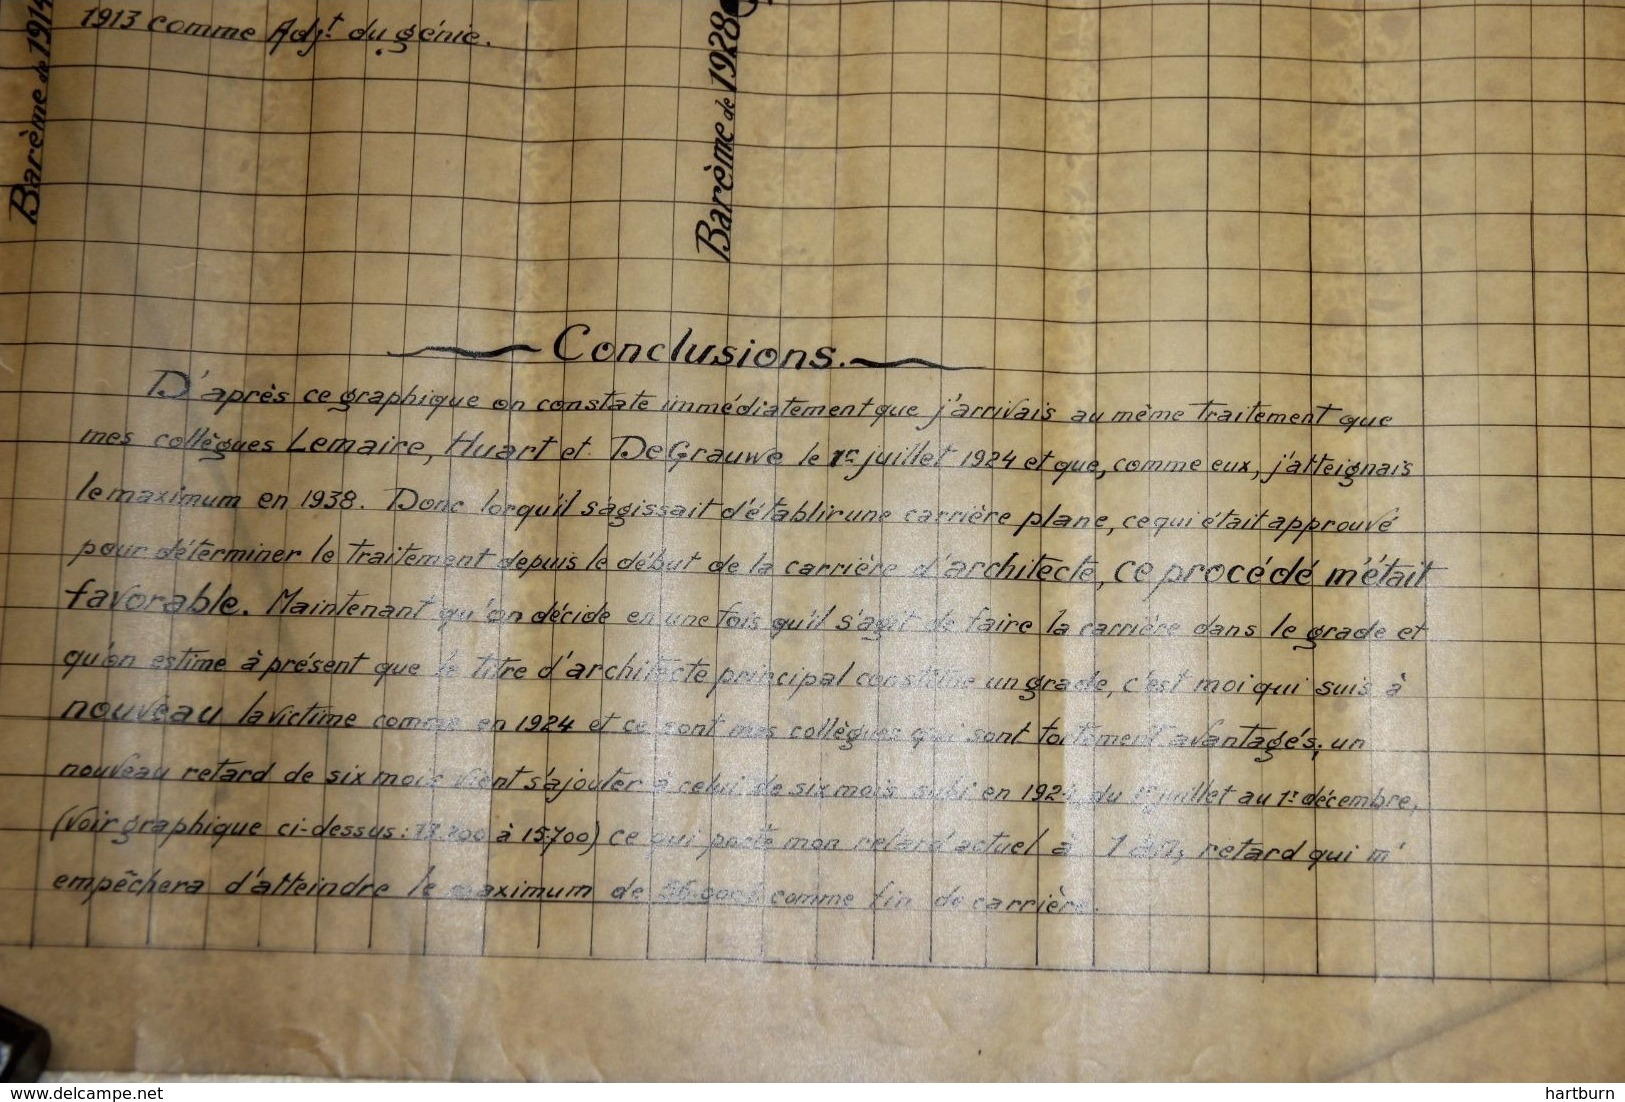 1913 comme Adjt du génie.
Barème de 1914
Barème de 1928
Conclusions.
D'après ce graphique on constate immédiatement que j'arrivais au même traitement que
mes collègues Lemaire, Huart et De Grauwe le 1er juillet 1924 et que, comme eux, j'atteignais
le maximum en 1938. Donc lorqu'il s'agissait d'établir une carrière plane, ce qui était approuvé
pour déterminer le traitement depuis le début de la carrière d'architecte, ce procédé m'était
favorable. Maintenant qu'on décide en une fois qu'il s'agit de faire la carrière dans le grade et
qu'on estime à présent que le titre d'architecte principal constitue un grade, c'est moi qui suis à
nouveau la victime comme en 1924 et ce sont mes collègues qui sont fortement avantagés; un
nouveau retard de six mois vient s'ajouter à celui de six mois subi en 1924 du 1er juillet au 1r décembre,
(voir graphique ci-dessus: à 15.700) ce qui porte mon retard actuel à 1 an, retard qui m'
empêchera d'atteindre le maximum de comme fin de carrière.
delcampe.net
hartburn